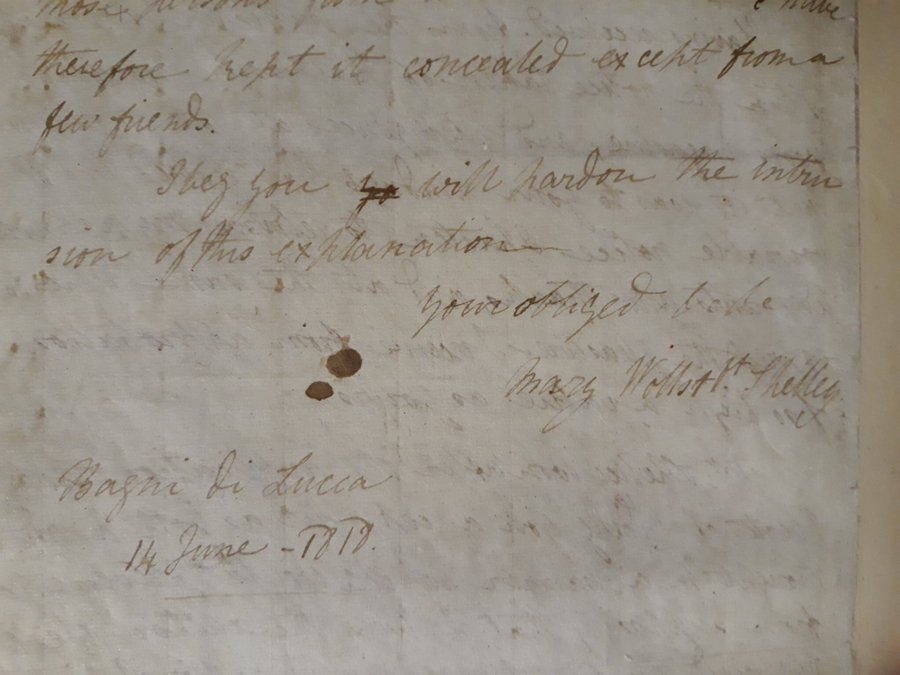 those persons from
I have
therefore kept it concealed except from a
few friends.
I beg you yo will pardon the intru
sion of this explanation—
Your obliged &c &c
Mary Wollst^ft. Shelley
Bagni di Lucca
14 June - 1818.